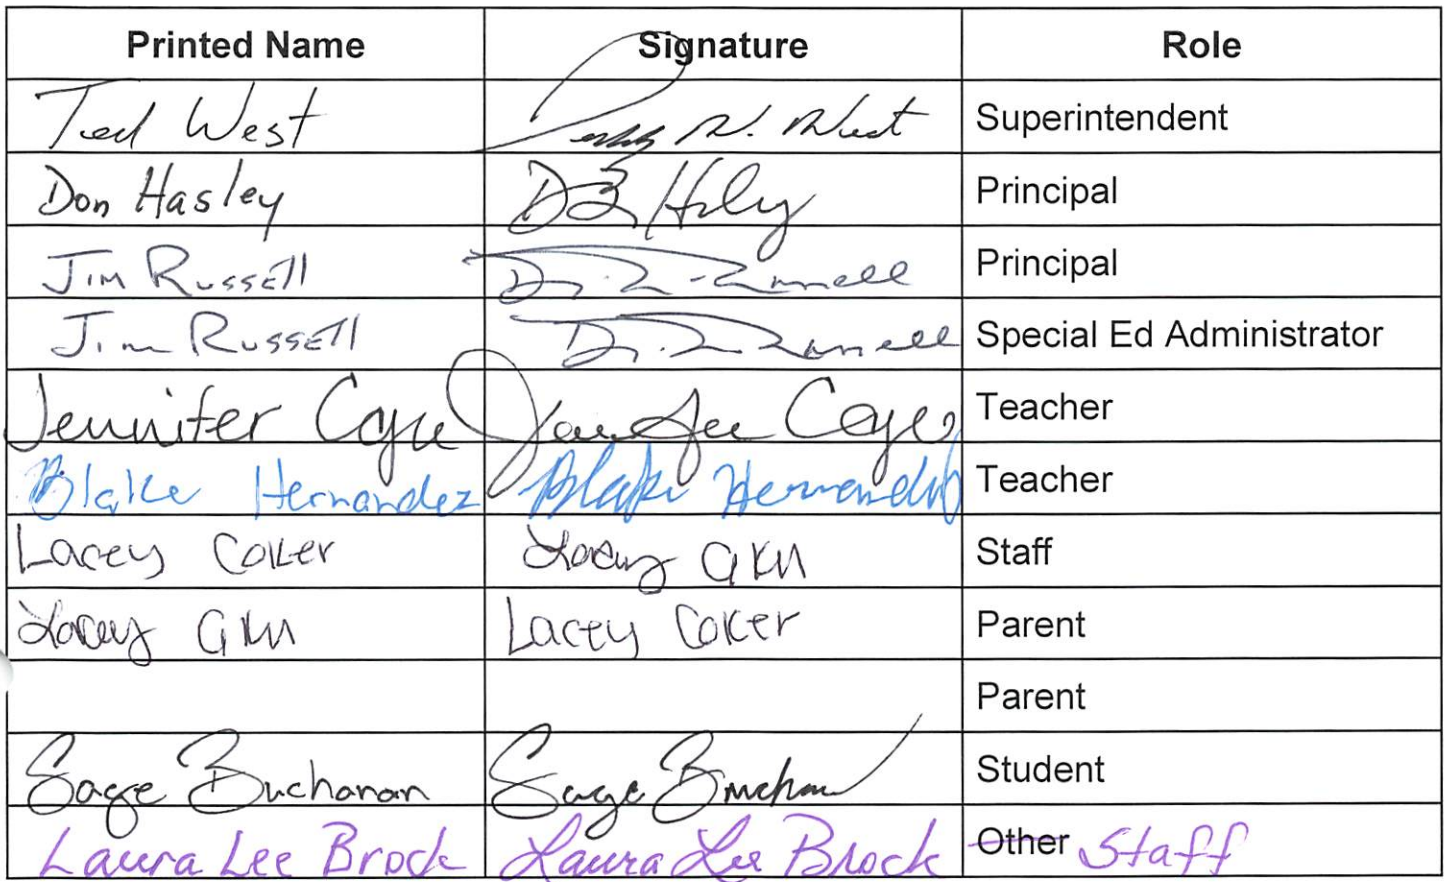 Printed Name Signature Role
Ted West Superintendent
Don Hasley Principal
Jim Russell Principal
Jim Russell Special Ed Administrator
Jennifer Jennifer Teacher
Blake Hernandez Blake Hernandez Teacher
Lacey Coker Lacey Staff
Lacey Lacey Coker Parent
Parent
Sage Buchanan Sage Student
Laura Lee Brock Laura Lee Brock Other Staff